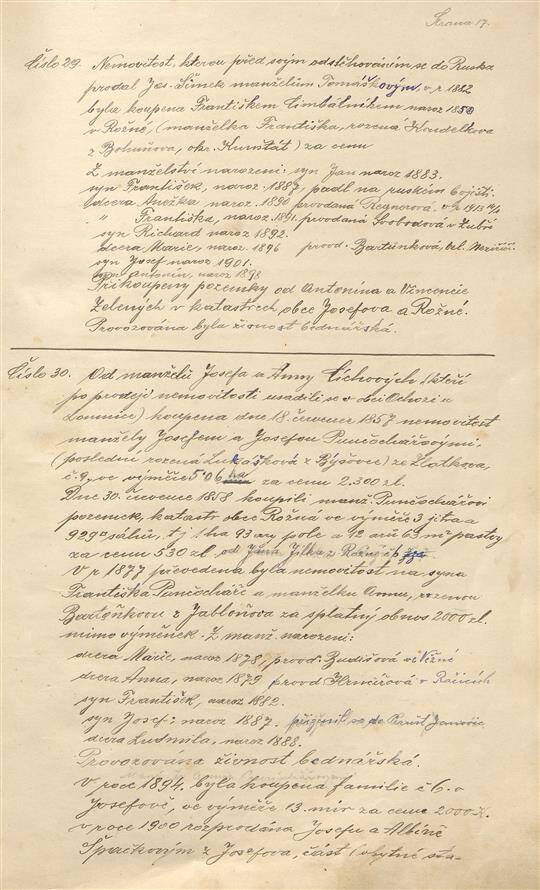 Strana 17.
Číslo 29. Nemovitost, kterou před svým odstěhováním se do Ruska
prodal Jos. Šimek manželům Tomáškovým, v r. 1882
byla koupena Františkem Cimbálníkem naroz 1850
v Rožné, (manželka Františka, rozená Koudelkova
z Bohuňova, okr. Kunštát) za cenu
Z manželství narozeni: syn Jan naroz 1883.
syn František, naroz. 1887, padl na ruském bojišti.
dcera Anežka naroz. 1890 provdaná v r. 1913
" Františka, naroz. 1891. provdaná Svobodová v
syn Richard naroz 1892.
dcera Marie, naroz. 1896 provd. Bartůňková, vel. Meziříčí.
syn Josef naroz 1901.
syn Antonín, naroz 1898
Přikoupeny pozemky od Antonína a Vincencie
Zelených v katastrech obce Josefova a Rožné.
Provozována byla živnost bednářská.
Číslo 30. Od manželů Josefa a Anny Čichových, (kteří
po prodeji nemovitosti usadili se v u
Lomnice) koupena dne 18. července 1857 nemovitost
manžely Josefem a Josefou Punčochářovými,
(poslední rozená Lukášková z Býšovce) ze Zlatkova,
č. 9, ve výměře 5·06 ha za cenu 2.300 zl.
Dne 30. července 1858 koupili manž. Punčochářovi
pozemek, katastr obce Rožná ve výměře 3 jitra a
929□ sáhů, t. j. 1 ha 93 ary pole a 12 arů 63 m² pastvy
za cenu 530 zl. od Jana Jílka z Rožné č.
V r. 1877 převedena byla nemovitost na syna
Františka Punčocháře a manželku Annu, rozenou
Bartoňkovu z Jabloňova za splatný obnos 2000 zl.
mimo výměnek. Z manž. narozeni:
dcera Marie, naroz 1878, provd. Budišová ve Vížné
dcera Anna, naroz 1879 provd v Račicích
syn František, naroz. 1882.
syn Josef: naroz 1887. přiženil se do
dcera Ludmila, naroz 1888.
Provozována živnost bednářská.
V roce 1894, byla koupena familie č 6. v
Josefově, ve výměře 13. mír za cenu 2000 K.
v roce 1900 rozprodána Josefu a Albíně
Špačkovým z Josefova, část (obytné sta-